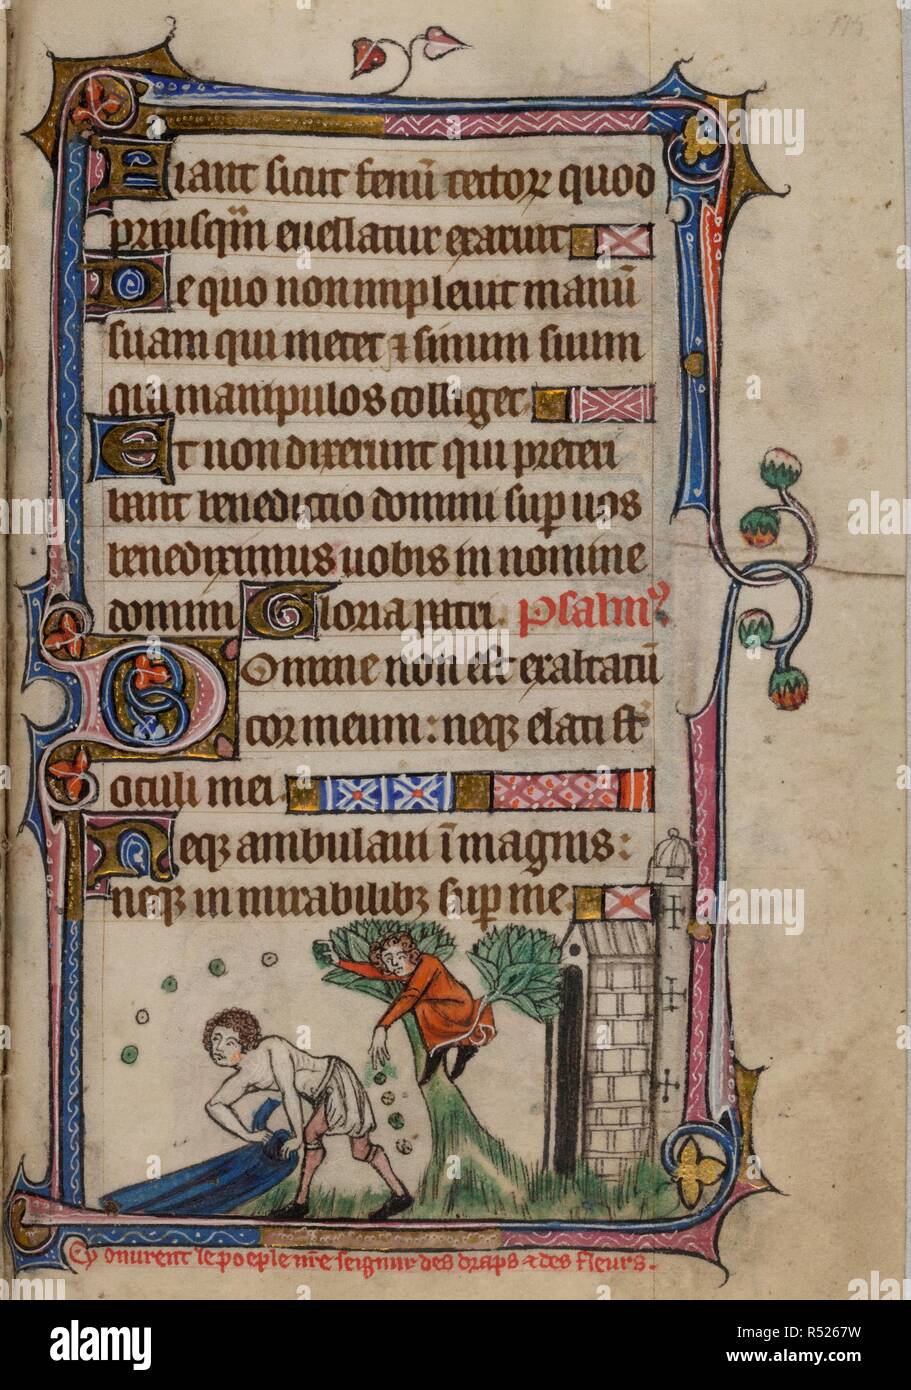 115
Fiant sicut fenū tectoꝝ quod
priusq̄m euellatur exaruit
De quo non impleuit manū
suam qui metet ⁊ sinum suum
qui manipulos colliget
Et non dixerunt qui preteri
bant benedictio domini suꝑ uos
benediximus uobis in nomine
domini Gloria patri. Psalmꝰ
Domine non est exaltatū
cor meum: neqꝫ elati st̄
oculi mei
Neqꝫ ambulaui ī magnis:
neqꝫ in mirabilibꝫ suꝑ me
Cy onurent le poeple nr̄e seignur des draps ⁊ des fleurs.
alamy
Image ID: R5267W
www.alamy.com